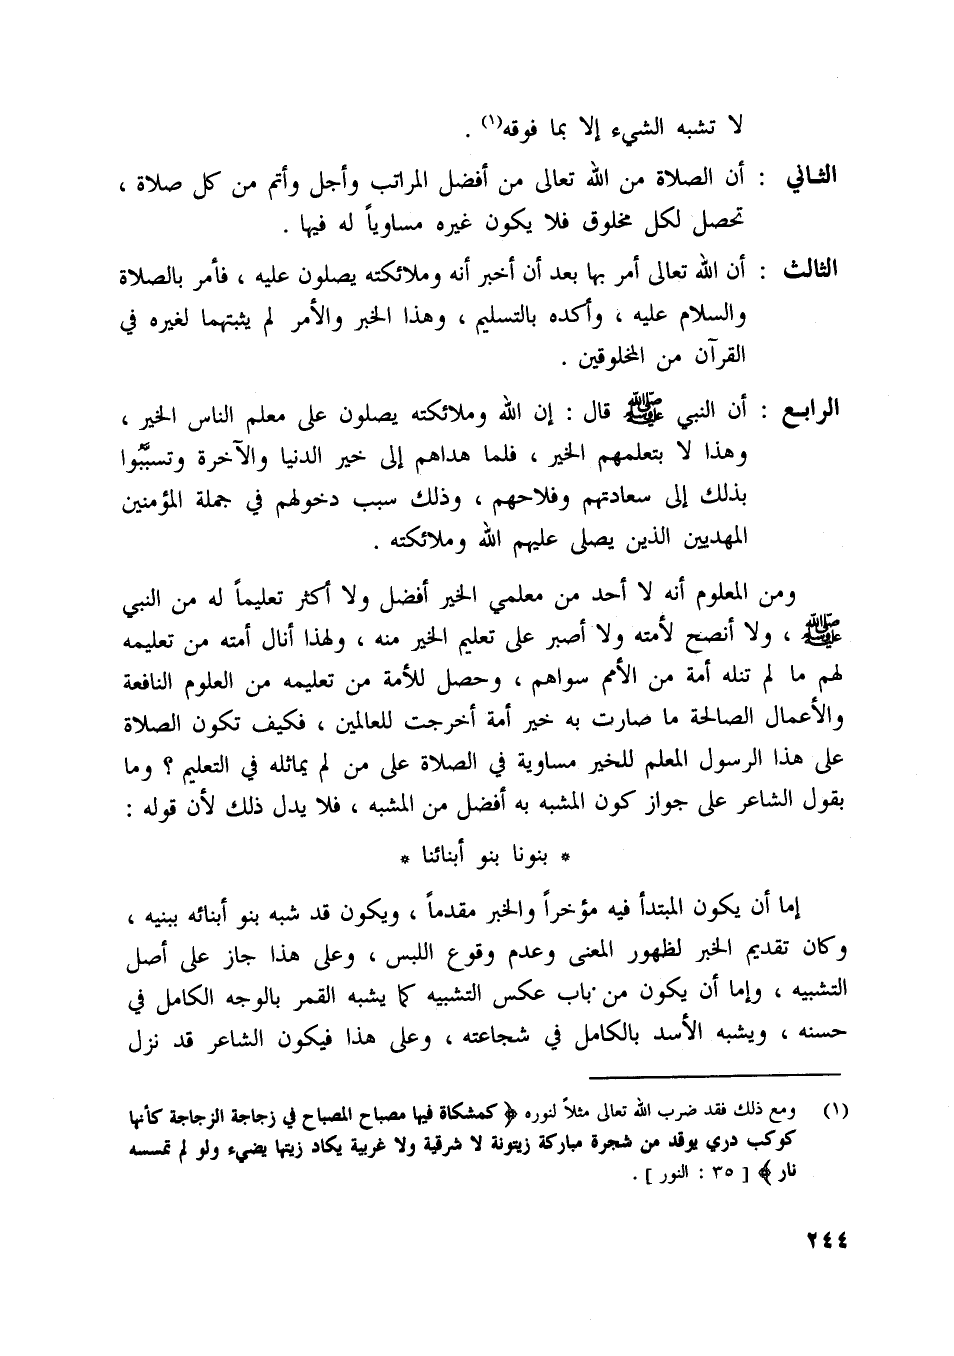 لا تشبه الشيء إلا بما فوقه(١) .
الثاني : أن الصلاة من الله تعالى من أفضل المراتب وأجل وأتم من كل صلاة ،
تحصل لكل مخلوق فلا يكون غيره مساوياً له فيها .
الثالث : أن الله تعالى أمر بها بعد أن أخبر أنه وملائكته يصلون عليه ، فأمر بالصلاة
والسلام عليه ، وأكده بالتسليم ، وهذا الخبر والأمر لم يثبتهما لغيره في
القرآن من المخلوقين .
الرابع : أن النبي ﷺ قال : إن الله وملائكته يصلون على معلم الناس الخير ،
وهذا لا بتعلمهم الخير ، فلما هداهم إلى خير الدنيا والآخرة وتسببوا
بذلك إلى سعادتهم وفلاحهم ، وذلك سبب دخولهم في جملة المؤمنين
المهديين الذين يصلى عليهم الله وملائكته .
ومن المعلوم أنه لا أحد من معلمي الخير أفضل ولا أكثر تعليماً له من النبي
ﷺ ، ولا أنصح لأمته ولا أصبر على تعليم الخير منه ، ولهذا أنال أمته من تعليمه
لهم ما لم تنله أمة من الأمم سواهم ، وحصل للأمة من تعليمه من العلوم النافعة
والأعمال الصالحة ما صارت به خير أمة أخرجت للعالمين ، فكيف تكون الصلاة
على هذا الرسول المعلم للخير مساوية في الصلاة على من لم يماثله في التعليم ؟ وما
بقول الشاعر على جواز كون المشبه به أفضل من المشبه ، فلا يدل ذلك لأن قوله :
* بنونا بنو أبنائنا *
إما أن يكون المبتدأ فيه مؤخراً والخبر مقدماً ، ويكون قد شبه بنو أبنائه ببنيه ،
وكان تقديم الخبر لظهور المعنى وعدم وقوع اللبس ، وعلى هذا جاز على أصل
التشبيه ، وإما أن يكون من باب عكس التشبيه كما يشبه القمر بالوجه الكامل في
حسنه ، ويشبه الأسد بالكامل في شجاعته ، وعلى هذا فيكون الشاعر قد نزل
(١) ومع ذلك فقد ضرب الله تعالى مثلاً لنوره ﴿ كمشكاة فيها مصباح المصباح في زجاجة الزجاجة كأنها
كوكب دري يوقد من شجرة مباركة زيتونة لا شرقية ولا غربية يكاد زيتها يضيء ولو لم تمسسه
نار ﴾ [ ٣٥ : النور ] .
٢٤٤